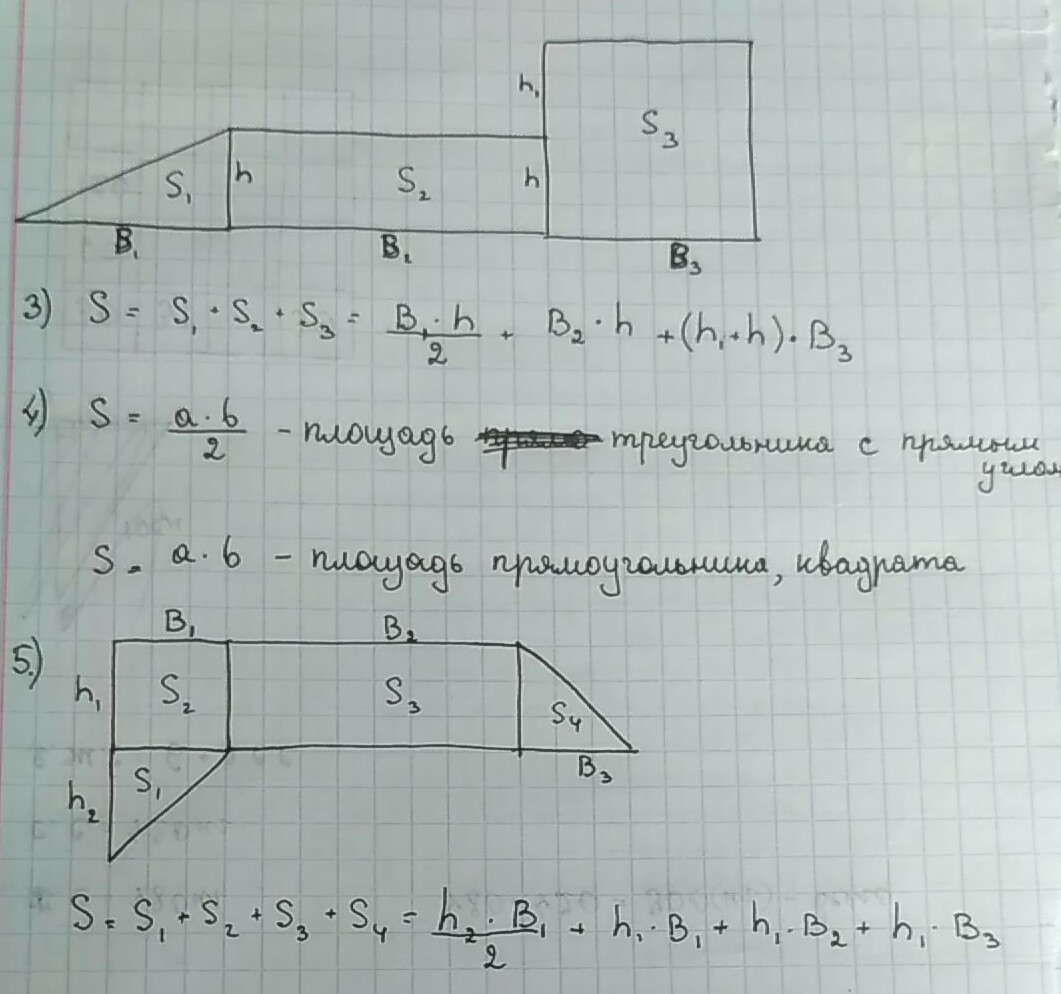 h₁
S₃
S₁ h S₂ h
B₁ B₂ B₃
3) S = S₁ + S₂ + S₃ = B₁ · h / 2 + B₂ · h + (h₁ + h) · B₃
4) S = a · b / 2 - площадь треугольника с прямым
углом
S = a · b - площадь прямоугольника, квадрата
B₁ B₂
5.) h₁ S₂ S₃ S₄
B₃
h₂ S₁
S = S₁ + S₂ + S₃ + S₄ = h₂ · B₁ / 2 + h₁ · B₁ + h₁ · B₂ + h₁ · B₃